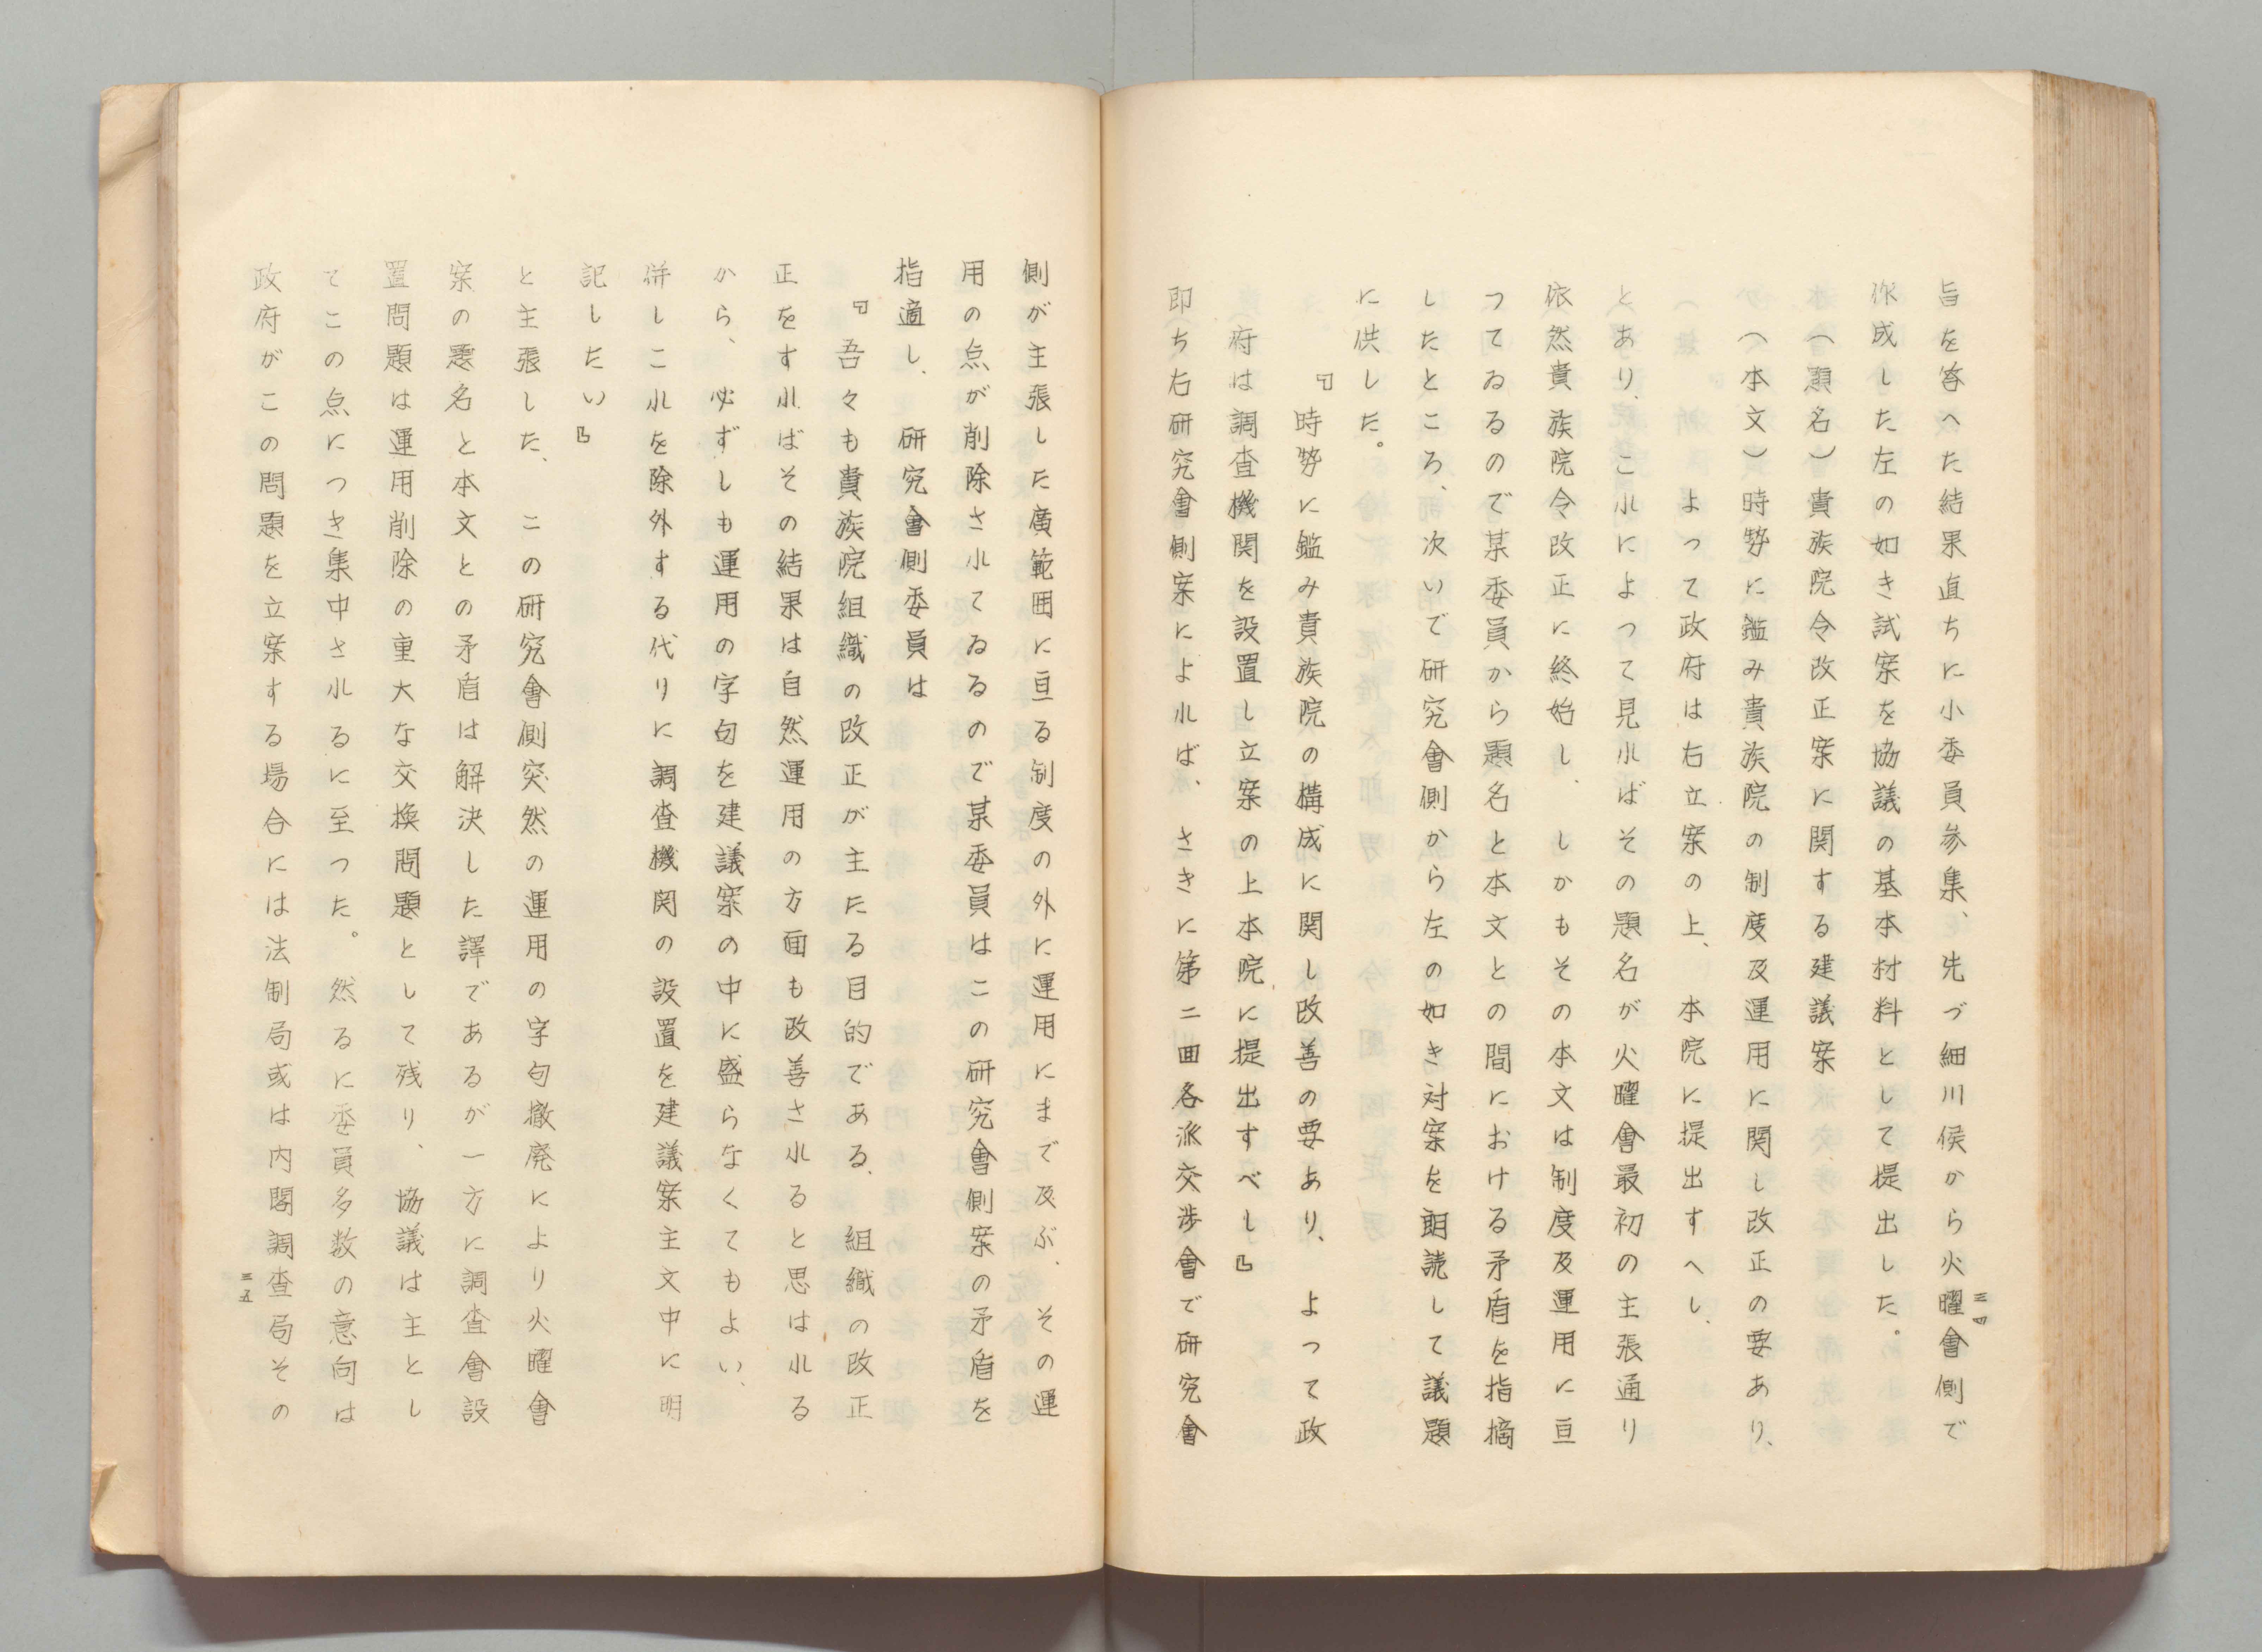 旨を答へた結果直ちに小委員参集、先づ細川侯から火曜會側で
作成した左の如き試案を協議の基本材料として提出した。
(題名)貴族院令改正案に関する建議案
(本文)時勢に鑑み貴族院の制度及運用に関し改正の要あり、
よって政府は右立案の上、本院に提出すへし、
とあり、これによって見ればその題名が火曜會最初の主張通り
依然貴族院令改正に終始し、しかもその本文は制度及運用に亘
ってゐるので某委員から題名と本文との間における矛盾を指摘
したところ、次いで研究會側から左の如き対案を朗読して議題
に供した。
『時勢に鑑み貴族院の構成に関し改善の要あり、よって政
府は調査機関を設置し立案の上本院に提出すべし』
即ち右研究會側案によれば、さきに第二回各派交渉會で研究會
三四
側が主張した廣範囲に亘る制度の外に運用にまで及ぶ、その運
用の点が削除されてゐるので某委員はこの研究會側案の矛盾を
指適し、研究會側委員は
『吾々も貴族院組織の改正が主たる目的である、組織の改正
正をすればその結果は自然運用の方面も改善されると思はれる
から、必ずしも運用の字句を建議案の中に盛らなくてもよい、
併しこれを除外する代りに調査機関の設置を建議案主文中に明
記したい』
と主張した、この研究會側突然の運用の字句撤廃により火曜會
案の題名と本文との矛盾は解決した譯であるが一方に調査會設
置問題は運用削除の重大な交換問題として残り、協議は主とし
てこの点につき集中されるに至つた。然るに委員多数の意向は
政府がこの問題を立案する場合には法制局或は内閣調査局その
三五